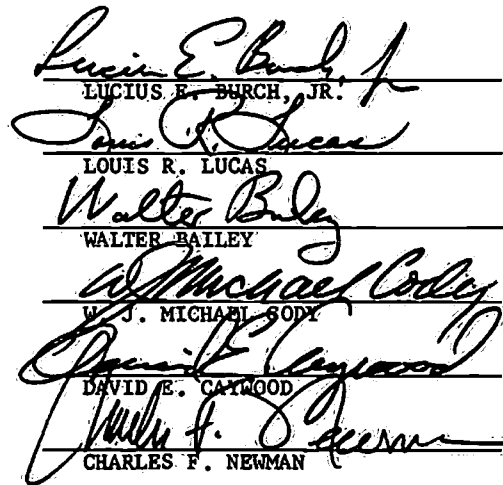 Lucius E. Burch, Jr.
LUCIUS E. BURCH, JR.
Louis R. Lucas
LOUIS R. LUCAS
Walter Bailey
WALTER BAILEY
W J Michael Cody
W. J. MICHAEL CODY
David E Caywood
DAVID E. CAYWOOD
Charles F. Newman
CHARLES F. NEWMAN